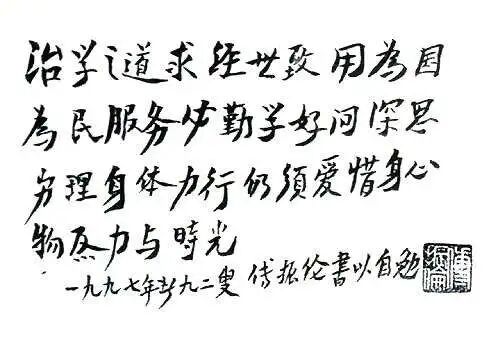 治学之道求经世致用為国
為民服务必勤学好问深思
穷理身体力行仍须爱惜身心
物力与時光
一九九七年九二叟 傅振伦書以自勉
傅振倫